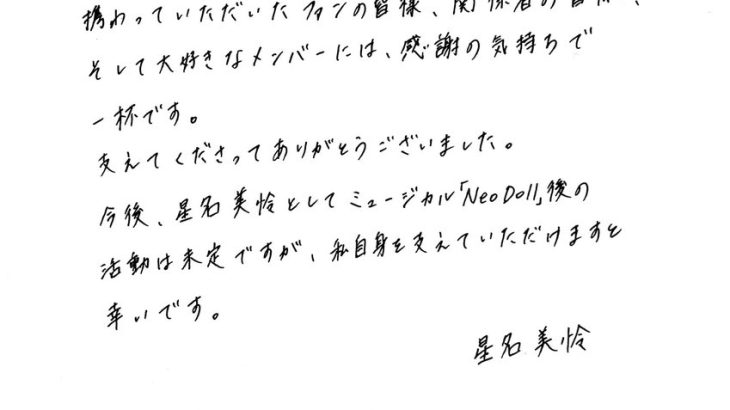 携わっていただいたファンの皆様、関係者の皆様、
そして大好きなメンバーには、感謝の気持ちで
一杯です。
支えてくださってありがとうございました。
今後、星名美怜としてミュージカル「NeoDoll」後の
活動は未定ですが、私自身を支えていただけますと
幸いです。
星名美怜